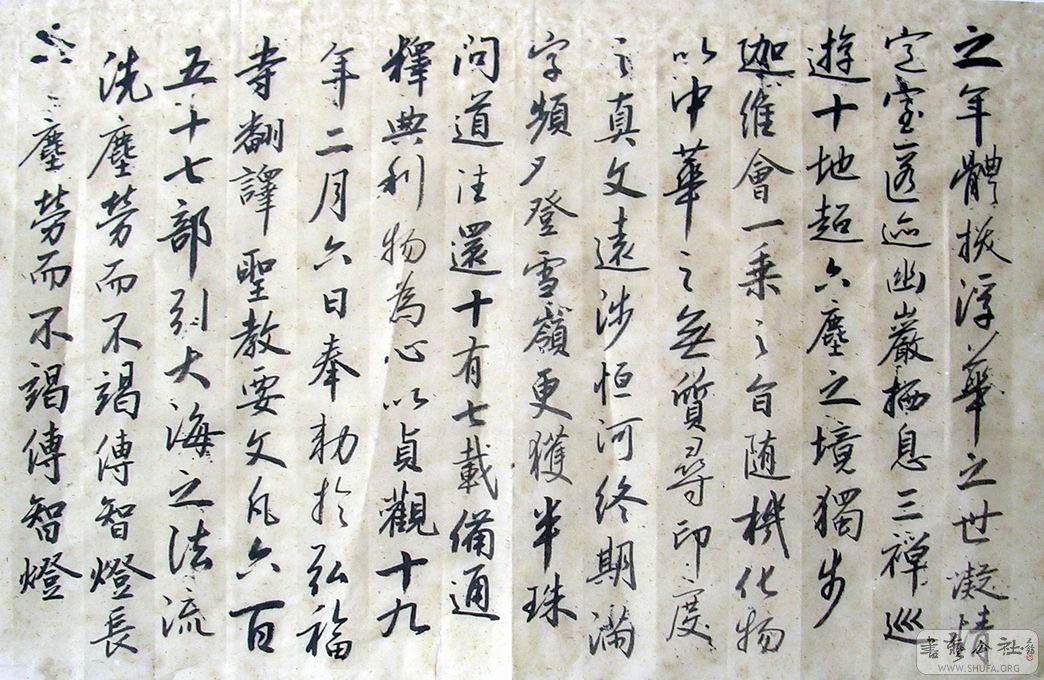 之年體拔浮華之世凝情
定室匿迹幽巖栖息三禪巡
遊十地超六塵之境獨步
迦維會一乘之旨随機化物
以中華之無質尋印度
之真文遠涉恒河終期滿
字頻夕登雪嶺更獲半珠
問道法還十有七載備通
釋典利物為心以貞觀十九
年二月六日奉勅於弘福
寺翻譯聖教要文凡六百
五十七部引大海之法流
洗塵勞而不竭傳智燈長
塵勞而不竭傳智燈
書藝公社
WWW.SHUFA.ORG